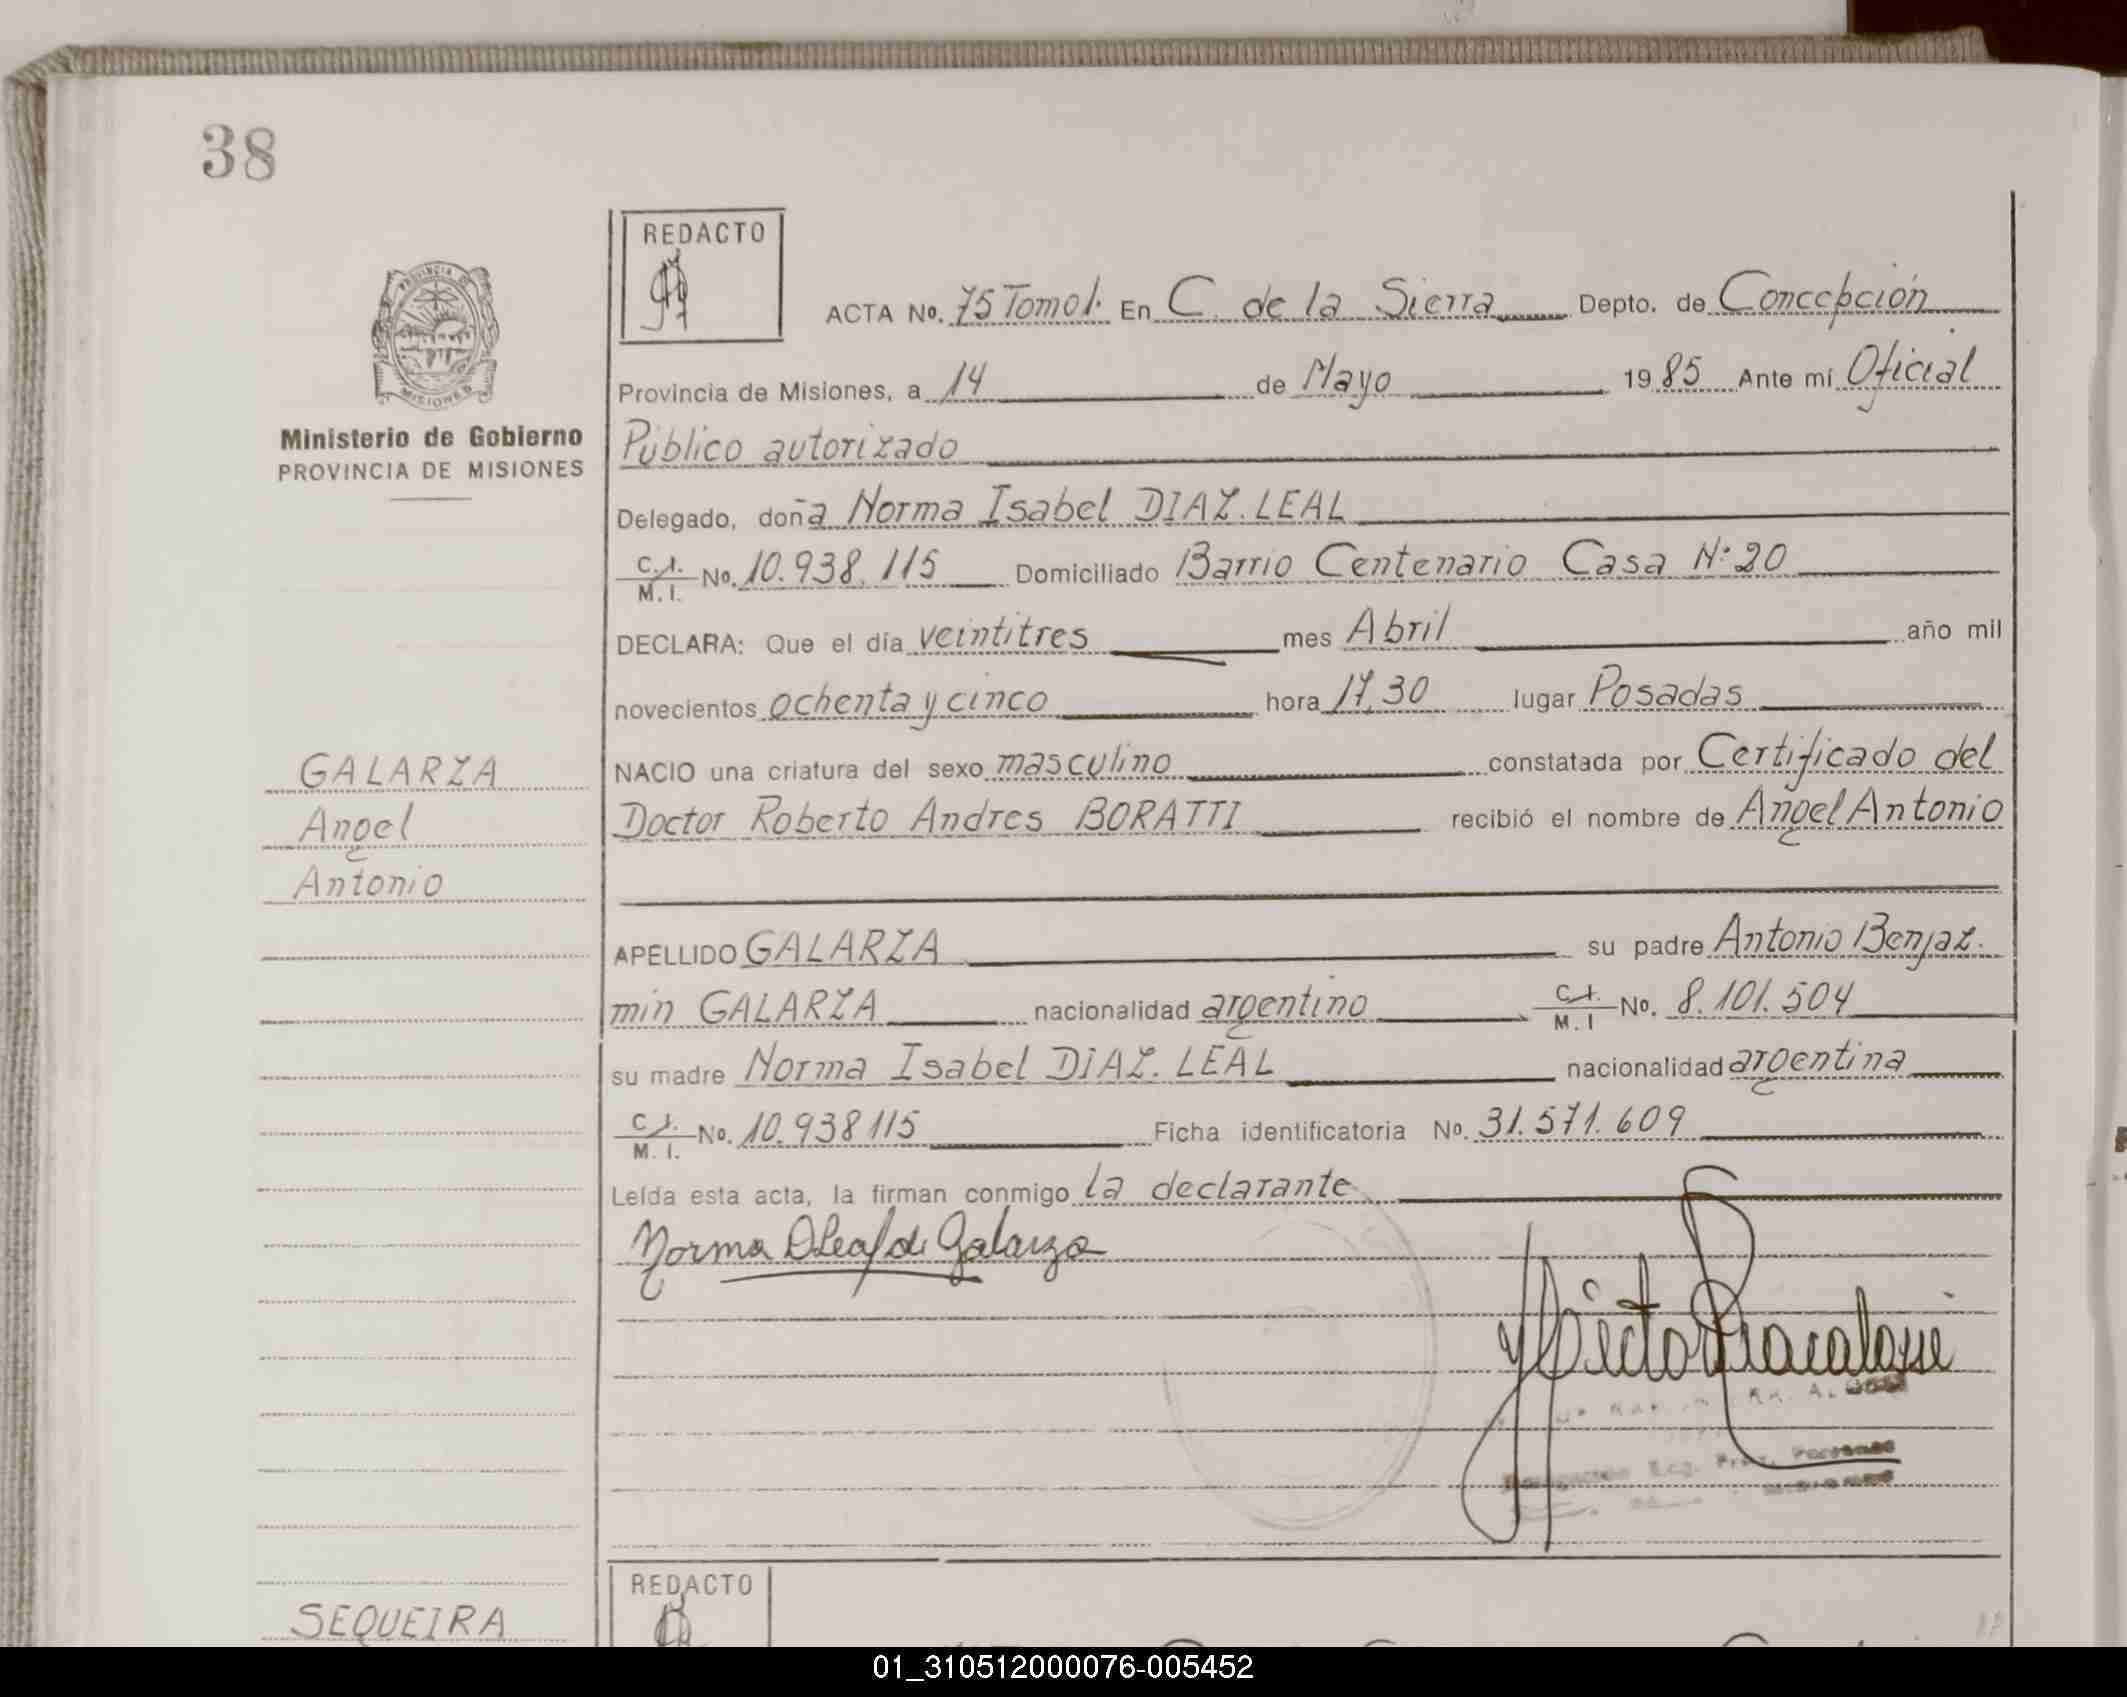 38
REDACTO
ACTA No. 75 Tomo 1. En C. de la Sierra Depto. de Concepción
Provincia de Misiones, a 14 de Mayo 1985 Ante mí Oficial
Ministerio de Gobierno
PROVINCIA DE MISIONES
Público autorizado
Delegado, doña Norma Isabel DIAZ. LEAL
C.I. M.I. No. 10.938.115 Domiciliado Barrio Centenario Casa N: 20
DECLARA: Que el día veintitres mes Abril año mil
novecientos ochenta y cinco hora 17,30 lugar Posadas
GALARZA
NACIO una criatura del sexo masculino constatada por Certificado del
Angel
Doctor Roberto Andres BORATTI recibió el nombre de Angel Antonio
Antonio
APELLIDO GALARZA su padre Antonio Benjaz.
min GALARZA nacionalidad argentino C.I. M.I No. 8.101.504
su madre Norma Isabel DIAZ. LEAL nacionalidad argentina
C.I. M.I. No. 10.938115 Ficha identificatoria No. 31.571.609
Leída esta acta, la firman conmigo la declarante
Norma D Leal de Galarza
REDACTO
SEQUEIRA
01_310512000076-005452